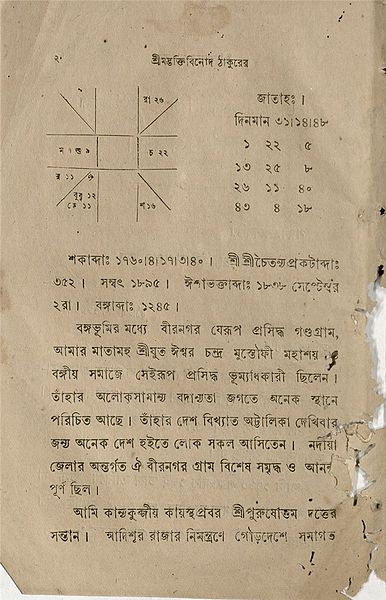 ২
শ্রীমদ্ভক্তিবিনোদ ঠাকুরের
রা ২৬
চ ২২
শ ১৬
জাতাহঃ।
দিনমান ৩১।১৪।৪৮
১ ২২ ৫
১৩ ২৫ ৮
২৬ ১১ ৪০
৪৩ ৪ ১৮
শকাব্দাঃ ১৭৬০।৪।১৭।৩।৪০। শ্রীশ্রীচৈতন্যপ্রকটাব্দাঃ
৩৫২। সম্বৎ ১৮৯৫। ঈশাভক্তাব্দাঃ ১৮৩৮ সেপ্টেম্বর
২রা। বঙ্গাব্দাঃ ১২৪৫।
বঙ্গভূমির মধ্যে বীরনগর যেরূপ প্রসিদ্ধ গণ্ডগ্রাম,
আমার মাতামহ শ্রীযুত ঈশ্বর চন্দ্র মুস্তৌফী মহাশয়
বঙ্গীয় সমাজে সেইরূপ প্রসিদ্ধ ভূম্যাধকারী ছিলেন।
তাঁহার অলোকসামান্য বদান্যতা জগতে অনেক স্থানে
পরিচিত আছে। তাঁহার দেশ বিখ্যাত অট্টালিকা দেখিবার
জন্য অনেক দেশ হইতে লোক সকল আসিতেন। নদীয়া
জেলার অন্তর্গত ঐ বীরনগর গ্রাম বিশেষ সমৃদ্ধ ও আনন্দ
পূর্ণ ছিল।
আমি কান্যকুব্জীয় কায়স্থপ্রবর শ্রীপুরুষোত্তম দত্তের
সন্তান। আদিশূর রাজার নিমন্ত্রণে গৌড়দেশে সমাগত